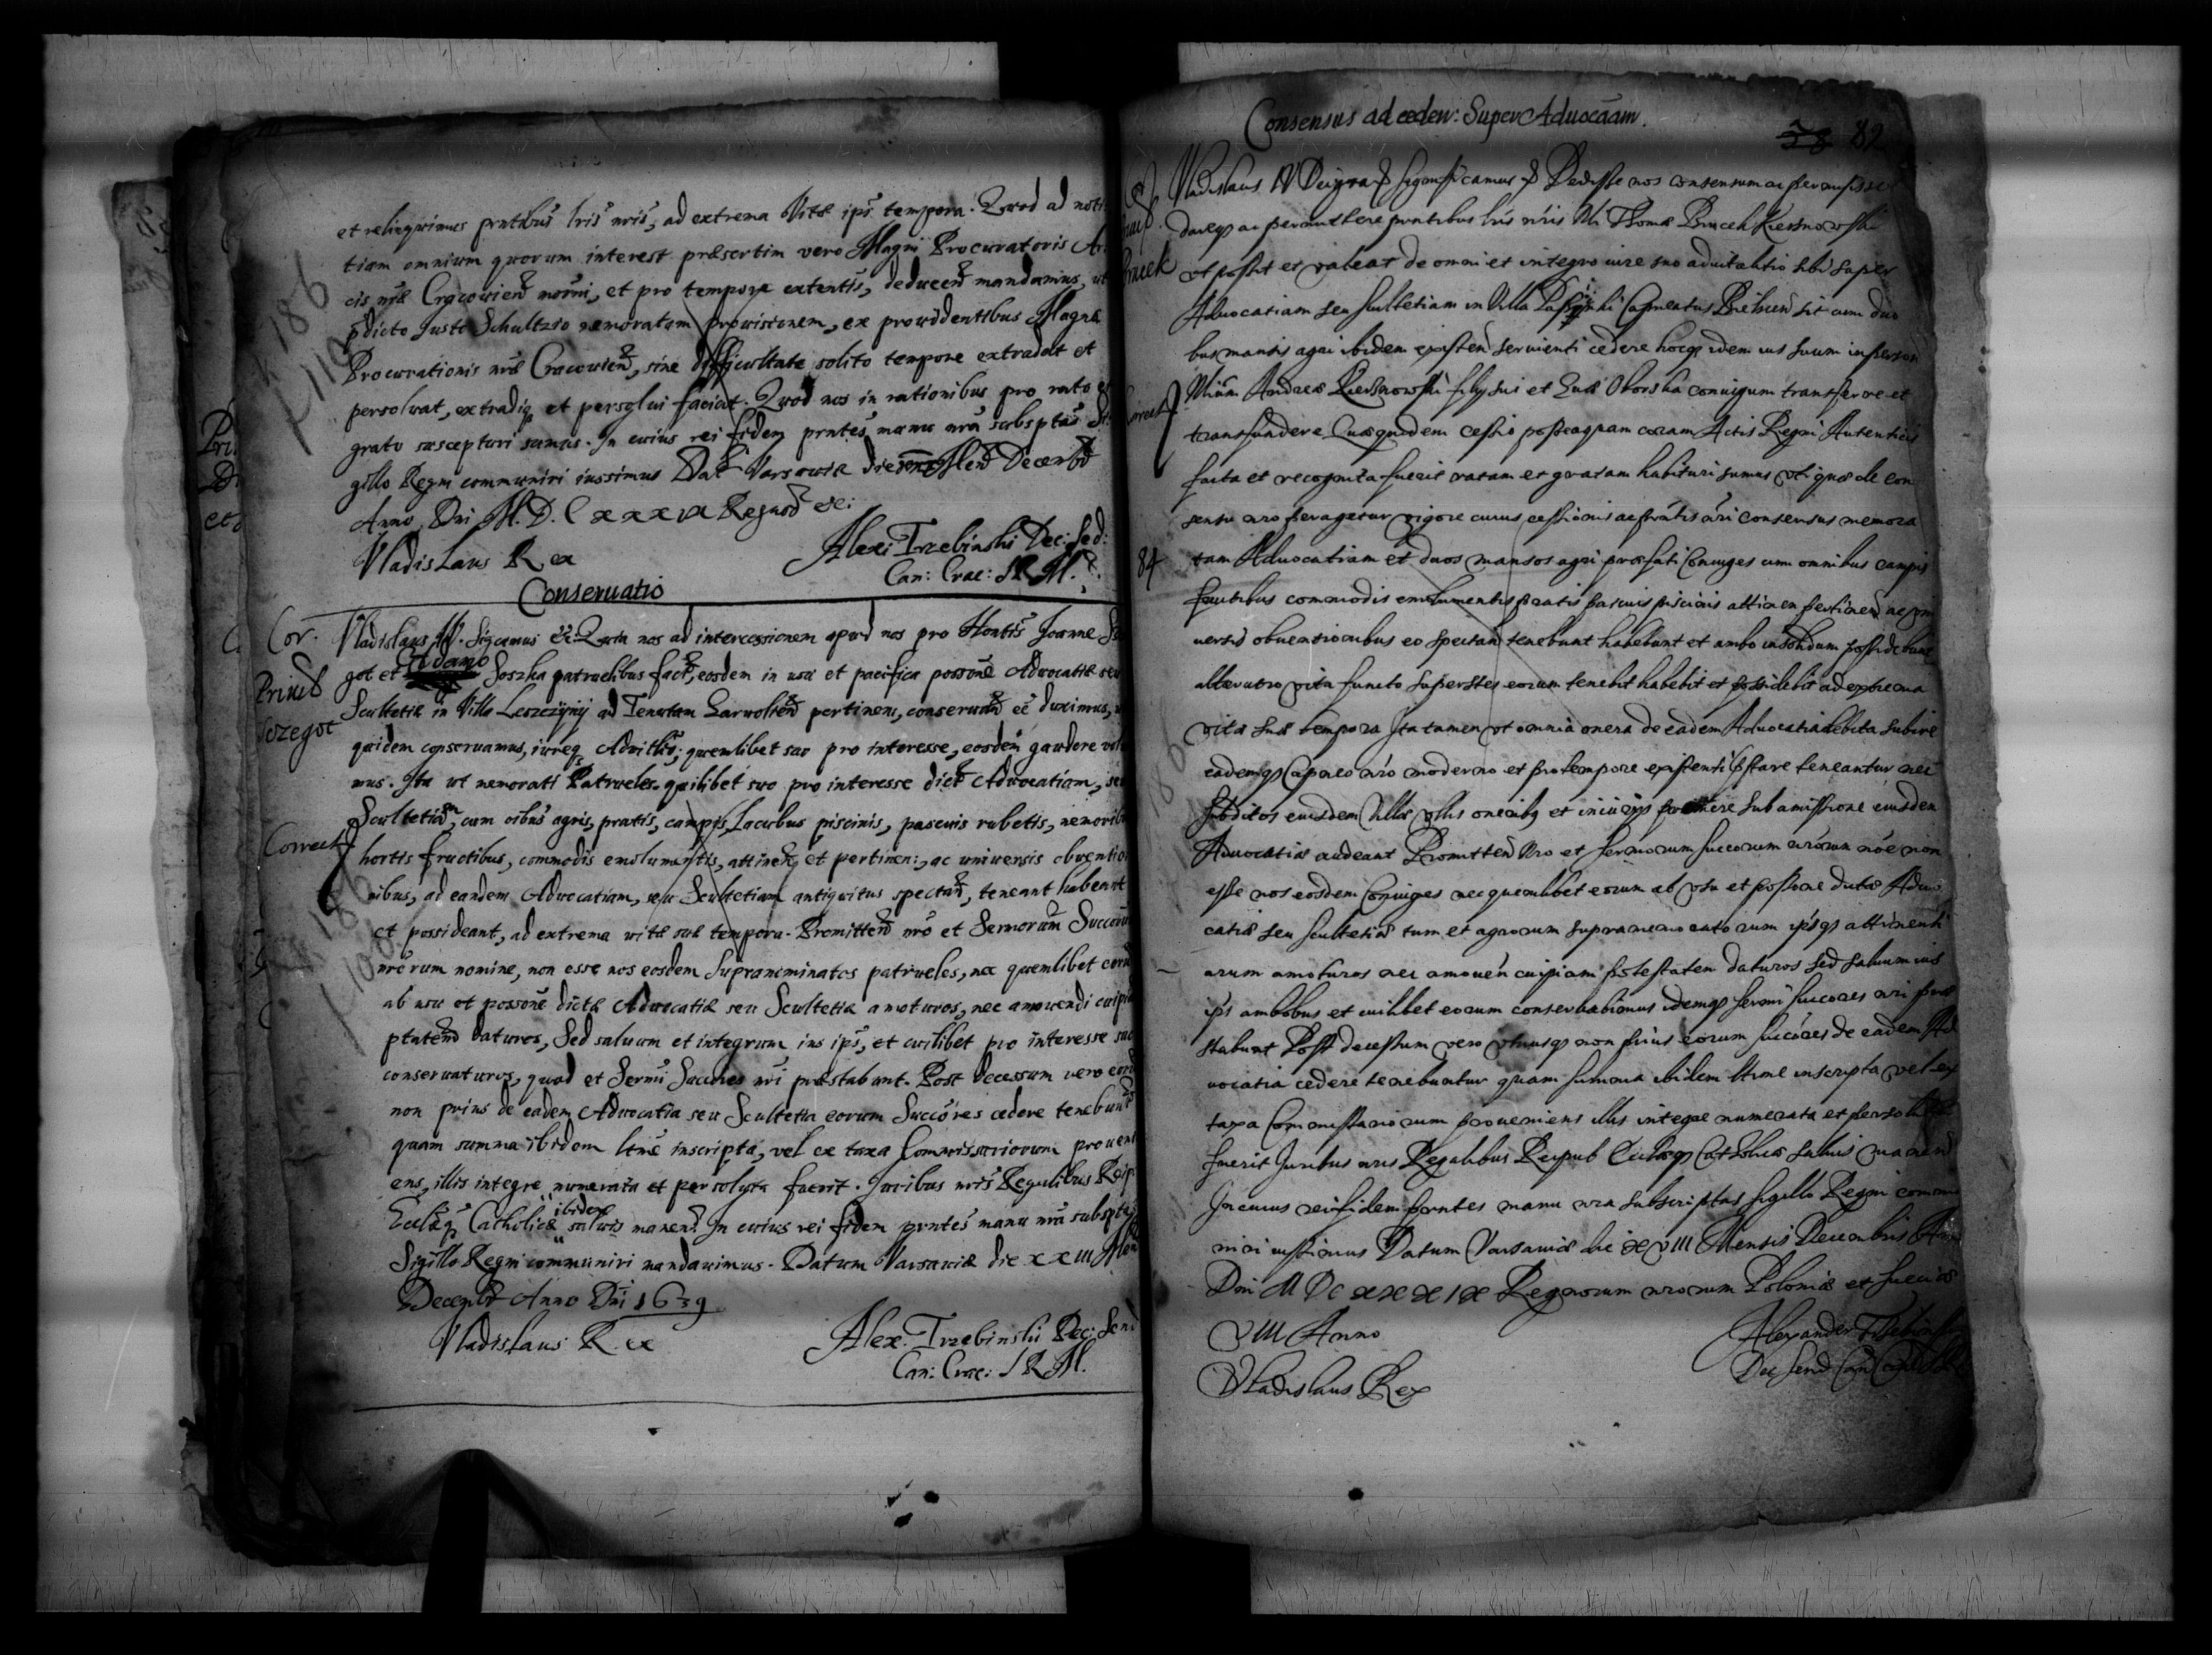 et relinquimus pntibus lris nris, ad extrema Vitæ ipsi tempora. Quod ad noti
tiam omnium quorum interest præsertim vero Magni Procuratoris Ar
cis nræ Cracovien moderni, et pro tempore extentis, deducen mandamus, ut
pdicto Justo Schultzio memoratam provisionem, ex proventibus Magnæ
Procurationis nræ Cracovien, sine difficultate solito tempore extradat et
persolvat, extradiq et persolvi faciat. Quod nos in rationibus pro rato et
grato suscepturi sumus. In cuius rei fidem pntes manu nra subsptas Si
gillo Regni communiri iussimus Dat Varsaviæ die Men Decemb
Anno Dni M.D.C xxxix Regnor etc:
Vladislaus Rex
Alex: Trzebinski Dec: Sed:
Can: Crac: S R M.
Conservatio
Cor.
Vladislaus IV. Sigcamus etc. Quia nos ad intercessionem apud nos pro Hontis Joanne
got et Adamo Soszka patruelibus fact, eosdem in usu et pacifica possone Advocatiæ seu
Privil
Scultetiæ in Villa Leszczyny ad Tenutam Garwolien pertinen, conservan ee duximus,
Szczegot
quidem conservamus, iureq Advitltio; quemlibet suo pro interesse, eosdem gaudere volu
mus. Ita ut memorati Patrueles quilibet suo pro interesse dict Advocatiam, seu
Scultetiam, cum oibus agris, pratis, campis, Lacubus piscinis, pascuis rubetis, nemorib
Correct
hortis fructibus, commodis emolumentis, attinen et pertinen:, ac universis obventio
nibus, ad eandem Advocatiam, seu Scultetiam antiquitus spectan, teneant habeant
et possideant, ad extrema vitæ suæ tempora. Promitten nro et Sermorum Succorum
nrorum nomine, non esse nos eosdem supranominatos patrueles, nec quemlibet eorum
ab usu et possone dictæ Advocatiæ seu Scultetiæ amoturos, nec amovendi cuipiam
ptatem daturos, Sed salvum et integrum ius ipsis, et cuilibet pro interesse suo
conservaturos, quod et Sermi Succores nri præstabunt. Post decessum vero eorum
non prius de eadem Advocatia seu Scultetia eorum Succores cedere tenebunt
quam summa ibidem ltime inscripta, vel ex taxa Commissariorum proveni
ens, illis integre numerata et persoluta fuerit. Juribus nris Regalibus Reip
Ecclæq Catholicæ ibidem salvis manen. In cuius rei fidem pntes manu nra subsptas
Sigillo Regni communiri mandavimus. Datum Varsaviæ die xxiii Men
Decemb Anno Dni 1639
Vladislaus Rex
Alex. Trzebinski Dec: Send
Can: Crac: S R M.
Consensus ad ceden: Super Advocaam.
38 82
Vladislaus IV Dei gra significamus Dedisse nos consensum ac permisisse
dareq ac permittere pntibus lris nris Thomæ Kiersnowski
ut possit et valeat de omni et integro iure suo advitalitio sibi super
Advocatiam seu scultetiam in Villa Capneatus sit cum duo
bus mansis agri ibidem existen servienti cedere hocq idem ius suum in person
Andreæ Kiersnowski filij sui et Evæ Oborska coniugum transferre et
transfundere Quæquidem cessio posteaquam coram Actis Regni Autenticis
facta et recognita fuerit ratam et gratam habituri sumus uti quæ de con
sensu nro peragetur vigore cuius cessionis ac pntis nri consensus memora
84
tam Advocatiam et duos mansos agri præfati Coniuges cum omnibus campis
fructibus commodis emolumentis pratis pascuis piscinis attinen pertinen ac vni
uersis obuentionibus eo spectan tenebunt habebunt et ambo insolidum possidebunt
alterutro vita functo superstes eorum tenebit habebit et possidebit ad extrema
vitæ suæ tempora Ita tamen ut omnia onera de eadem Advocatia debita subire
eademq Capneo nro moderno et pro tempore existenti pstare teneantur nec
subditos eiusdem Villæ vllis oneribq et iniurijs premere sub amissione eiusdem
Advocatiæ audeant Promitten Nro et sermorum succorum nrorum noe non
esse nos eosdem Coniuges nec quemlibet eorum ab vsu et possone dictæ Aduo
catiæ seu scultetiæ tum et agrorum supramemoratorum ipsq attinenti
arum amoturos nec amouen cuipiam potestatem daturos sed saluum ius
ipis ambobus et cuilibet eorum conservabimus idemq sermi succores nri præ
stabunt Post decessum vero vtriusq non prius eorum succores de eadem Ad
uocatia cedere tenebuntur quam summa ibidem ltime inscripta vel ex
taxa Commissariorum proveniens illis integre numerata et persoluta
fuerit Juribus nris Regalibus Reipub Ecclæq Catholicæ saluis manen
In cuius rei fidem pntes manu nra subscriptas sigillo Regni commu
niri iussimus Datum Varsaviæ die xviii Mensis Decembris Anno
Dni M DC xxxix Regnorum nrorum Poloniæ et Sueciæ
VIII Anno
Vladislaus Rex
Alexander Trzebinski
Dec Send Can Crac